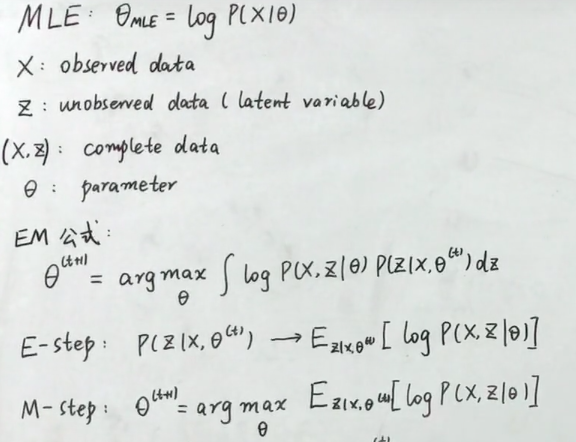 MLE: θ_MLE = log P(X|θ)
X: observed data
Z: unobserved data (latent variable)
(X,Z): complete data
θ: parameter
EM 公式:
θ^(t+1) = arg max_θ ∫ log P(X,Z|θ) P(Z|X,θ^(t)) dz
E-step: P(Z|X,θ^(t)) → E_Z|X,θ^(t) [log P(X,Z|θ)]
M-step: θ^(t+1) = arg max_θ E_Z|X,θ^(t) [log P(X,Z|θ)]